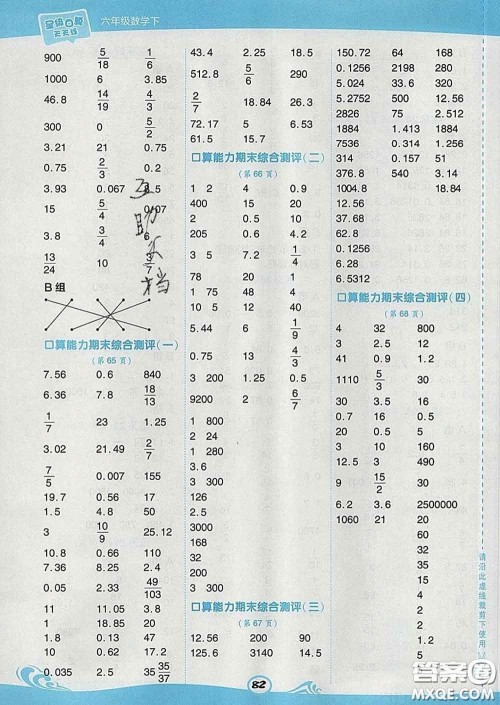 全体口算
天天练
六年级数学下
900 5/18 1/6
1000 6 3.85
46.8 14/19 4/3
300 0 5/2
3.21 21 0.75
0.75 0.2 3/2
3.93 0.067 8.5
15 5/4 0.07
3.8 3/4 6
13/24 10 3/7
B组
口算能力期末综合测评(一)
(第65页)
7.56 0.6 840
6.36 7.8 18/13
1/7 23 1.25
3.02 21.49 2/7
7/5 0.007 155
19.7 0.56 17
57 1.5 16
3 10/9 0.5
10.8 0.06 114
7.2 0.86 45
0.05 2.33 49/103
11 11.05 0.1
1 18.85 20
10 0.04 1
0.035 2.5 35 35/37
43.4 2.25 18.5
512.8 5/8 3/2
2/7 18.84 26.3
72.17 5 0.5
61.5 15.7
口算能力期末综合测评(二)
(第66页)
1 2 4 0.9
400 15 20
2 0.5 10
0.35 6.2 1/4
78 20 1
10 5 12 40
5.44 6 1/9
10 1.2 4/3
3 200 3 1
9200 2 6/7
1 800
2 400
3.6
3 300
12.56
2.5
3000
168
32
0
3 300
口算能力期末综合测评(三)
(第67页)
12.56 200 90
125.6 3140 14.5
150.72 64 168
0.1256 2 9
5.024 33.6 32
5.2752 50 12.56
2826 75 2.512
1884 1.413 1884
7.2 2.512 314
376.8 540 3.14
1004.8 18.84
12.56
0.1256
20
6.28
6.5312
口算能力期末综合测评(四)
(第68页)
4 32 800
3 2.5 12
41 0.09 1.3
1110 5/3 30
30 3.5 16
0.7 16 0.5
20 5 0.15
12.5 3 450
9 15/2 30
6.2 3.6 2500000
1060 21 20
12
32
60
5
5
2
1
3
0.5
82
请沿此虚线裁剪下使用
答案圈
MXQE.COM